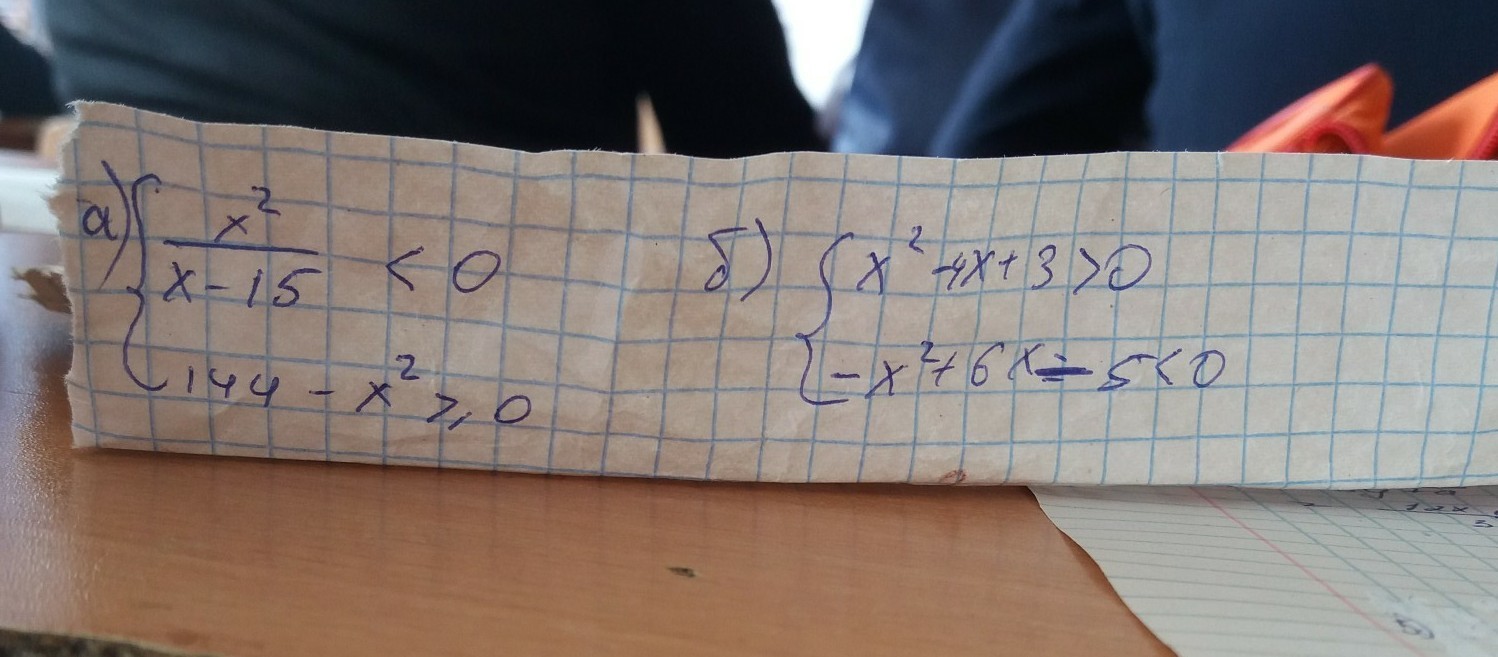 а) { x² / (x - 15) < 0
144 - x² ⩾ 0
б) { x² - 4x + 3 > 0
- x² + 6x - 5 < 0
12x
3
5)